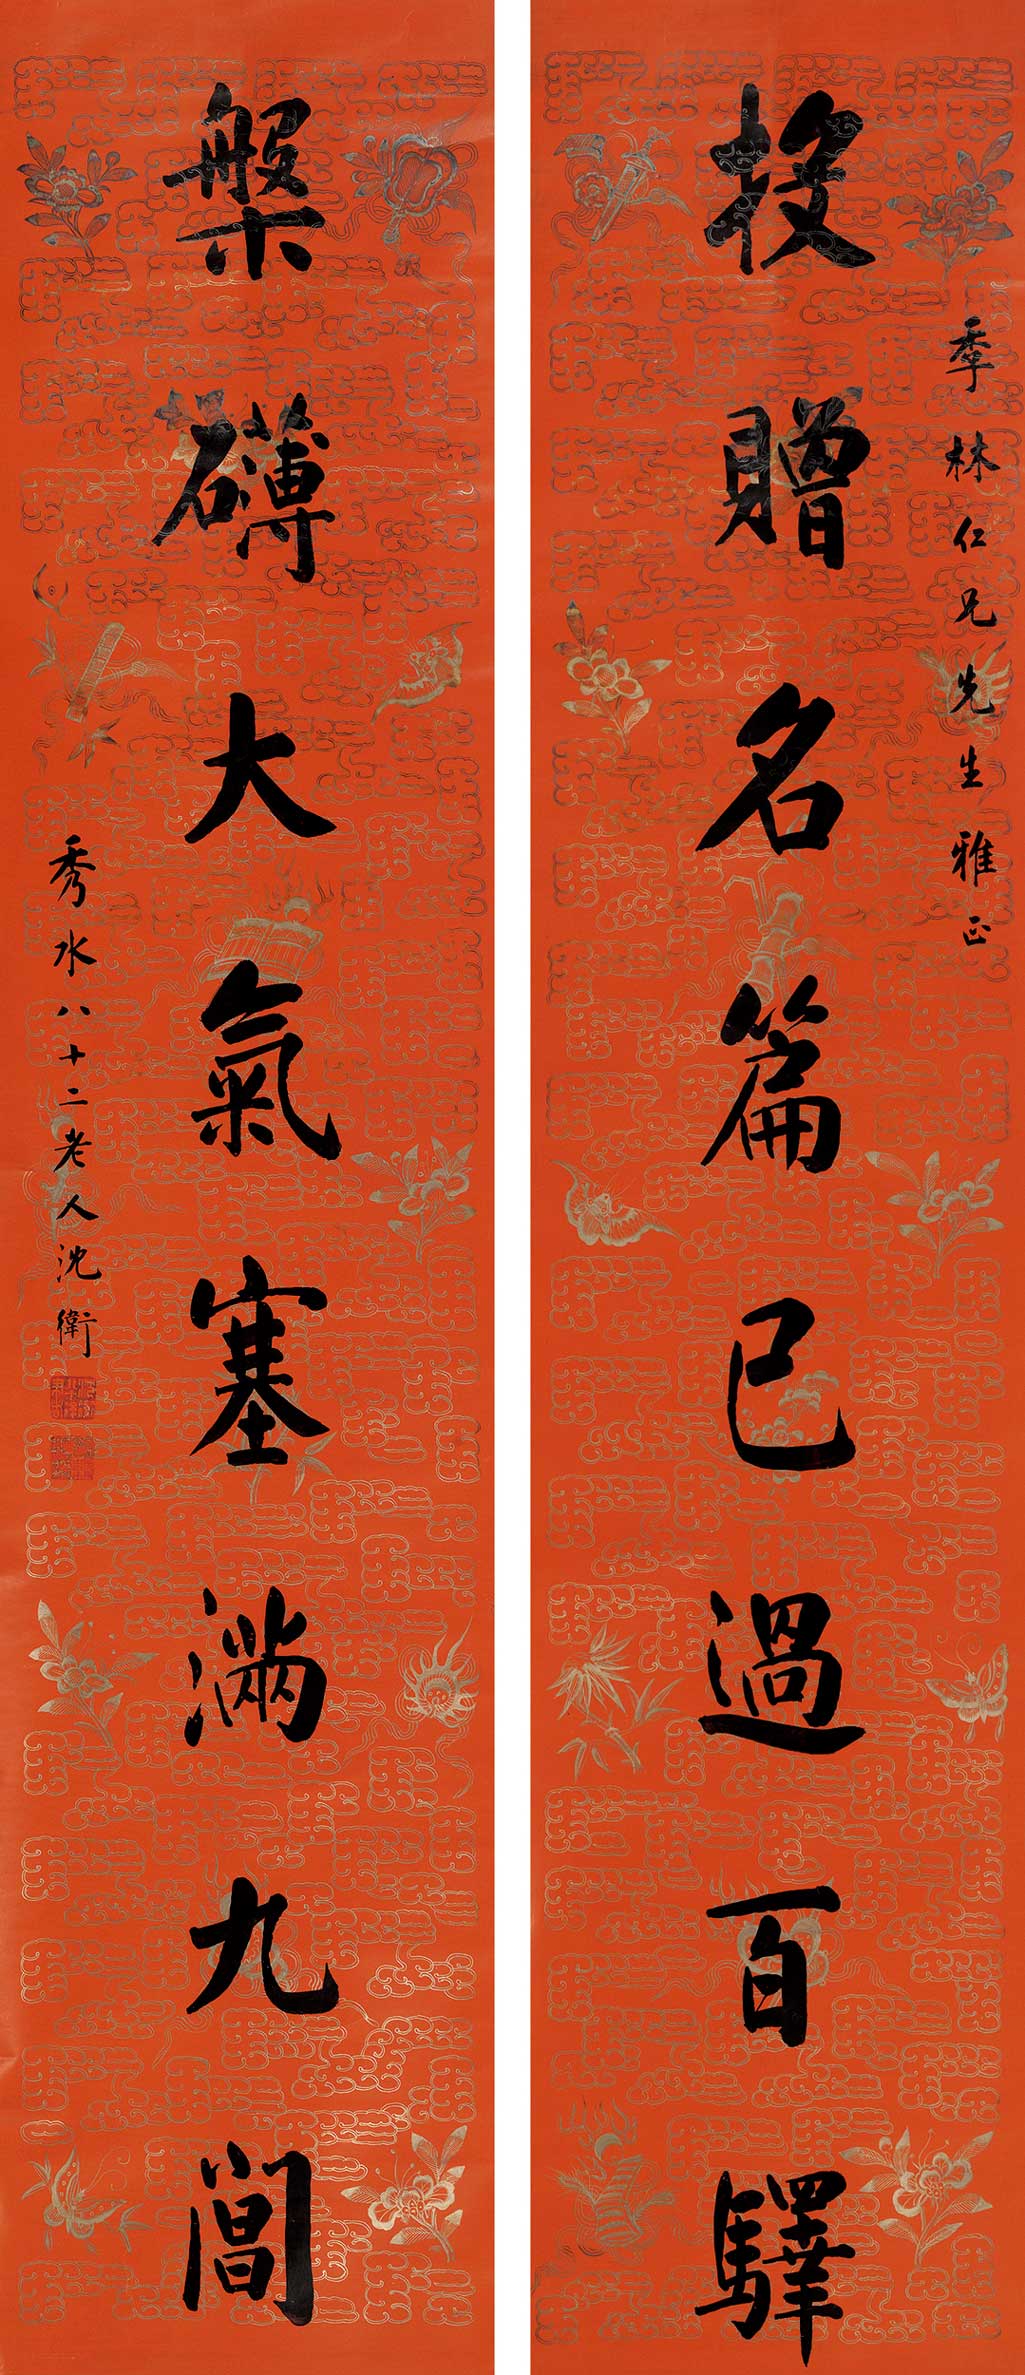 季林仁兄先生雅正
投贈名篇已過百驛
槃礴大氣塞滿九閶
秀水八十二老人沈衛